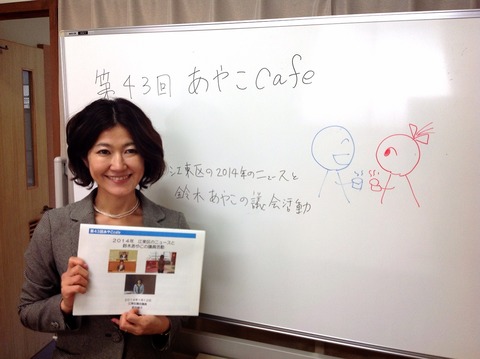 第43回 あやこcafe
江東区の2014年のニュースと
鈴木あやこの議会活動
第43回あやこcafe
2014年 江東区のニュースと
鈴木あやこの議員活動